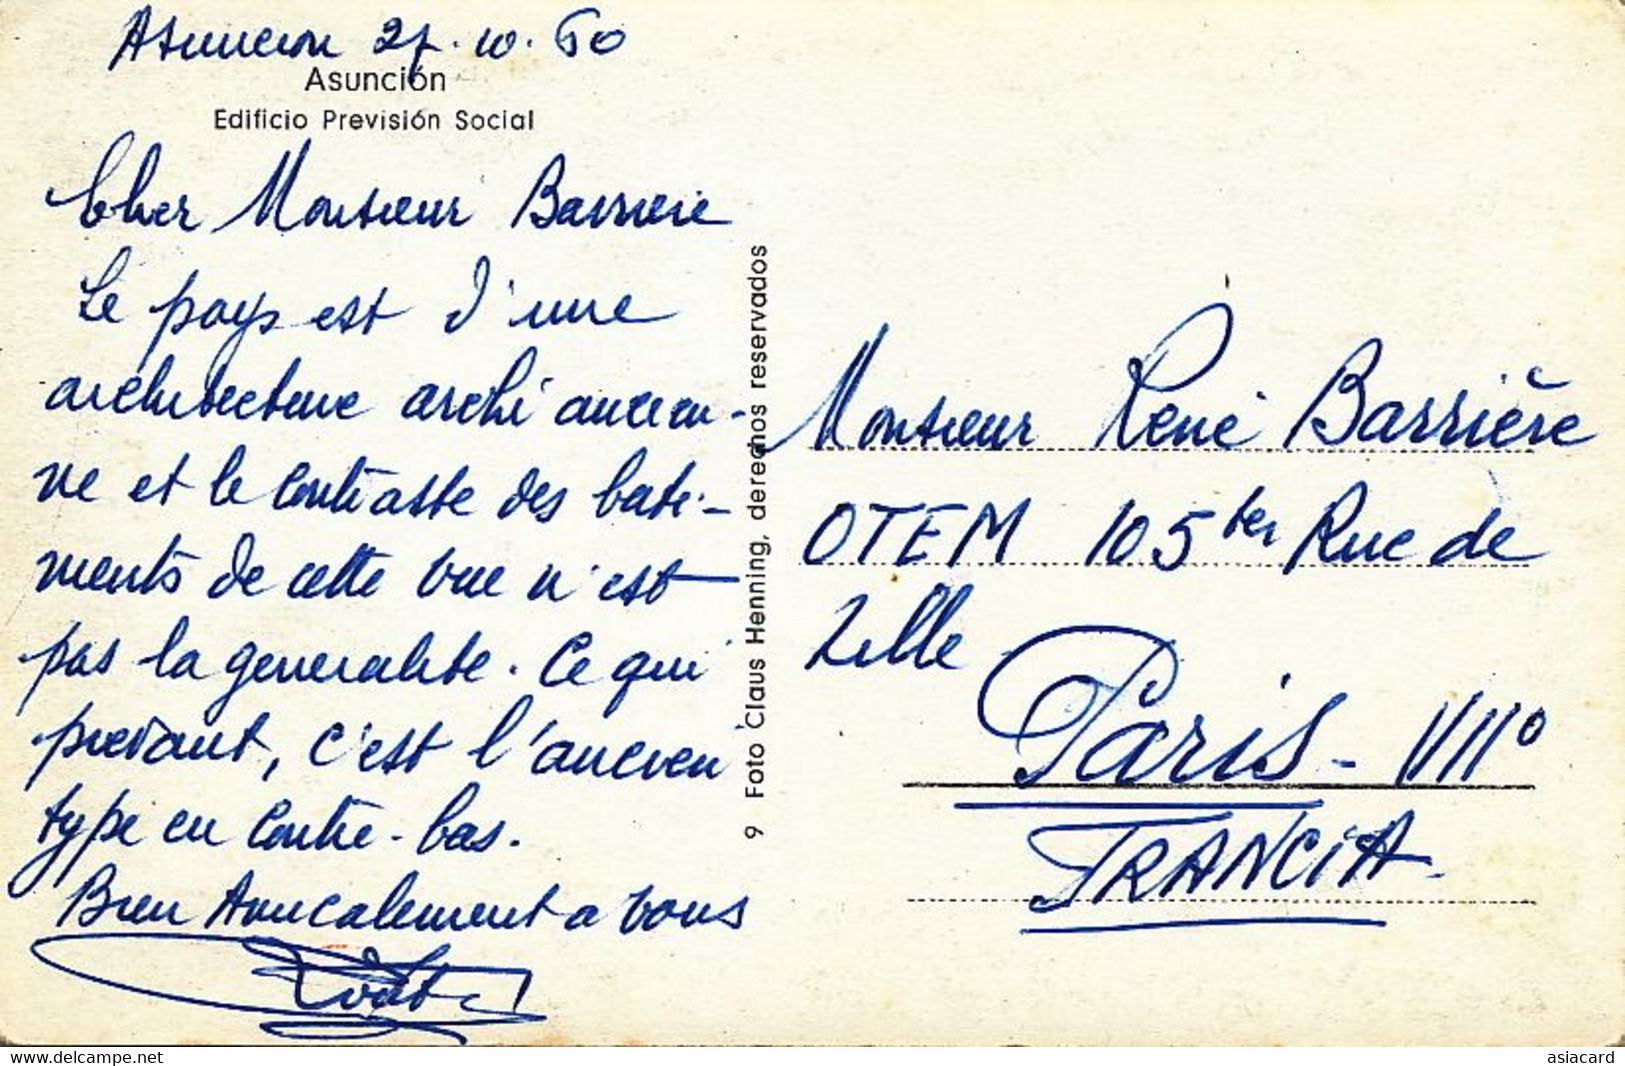 Asuncion 27.10.60
Asunción
Edificio Previsión Social
Cher Monsieur Barriere
Le pays est d'une
architecture archi ancien-
ne et le contraste des bati-
ments de cette vue n'est
pas la generalite. Ce qui
prevaut, c'est l'ancien
type en contre-bas.
Bien Amicalement a vous
9 Foto Claus Henning, derechos reservados
Monsieur René Barrière
OTEM 105 ter Rue de
Lille
Paris - VII°
FRANCIA.
delcampe.net
asiacard